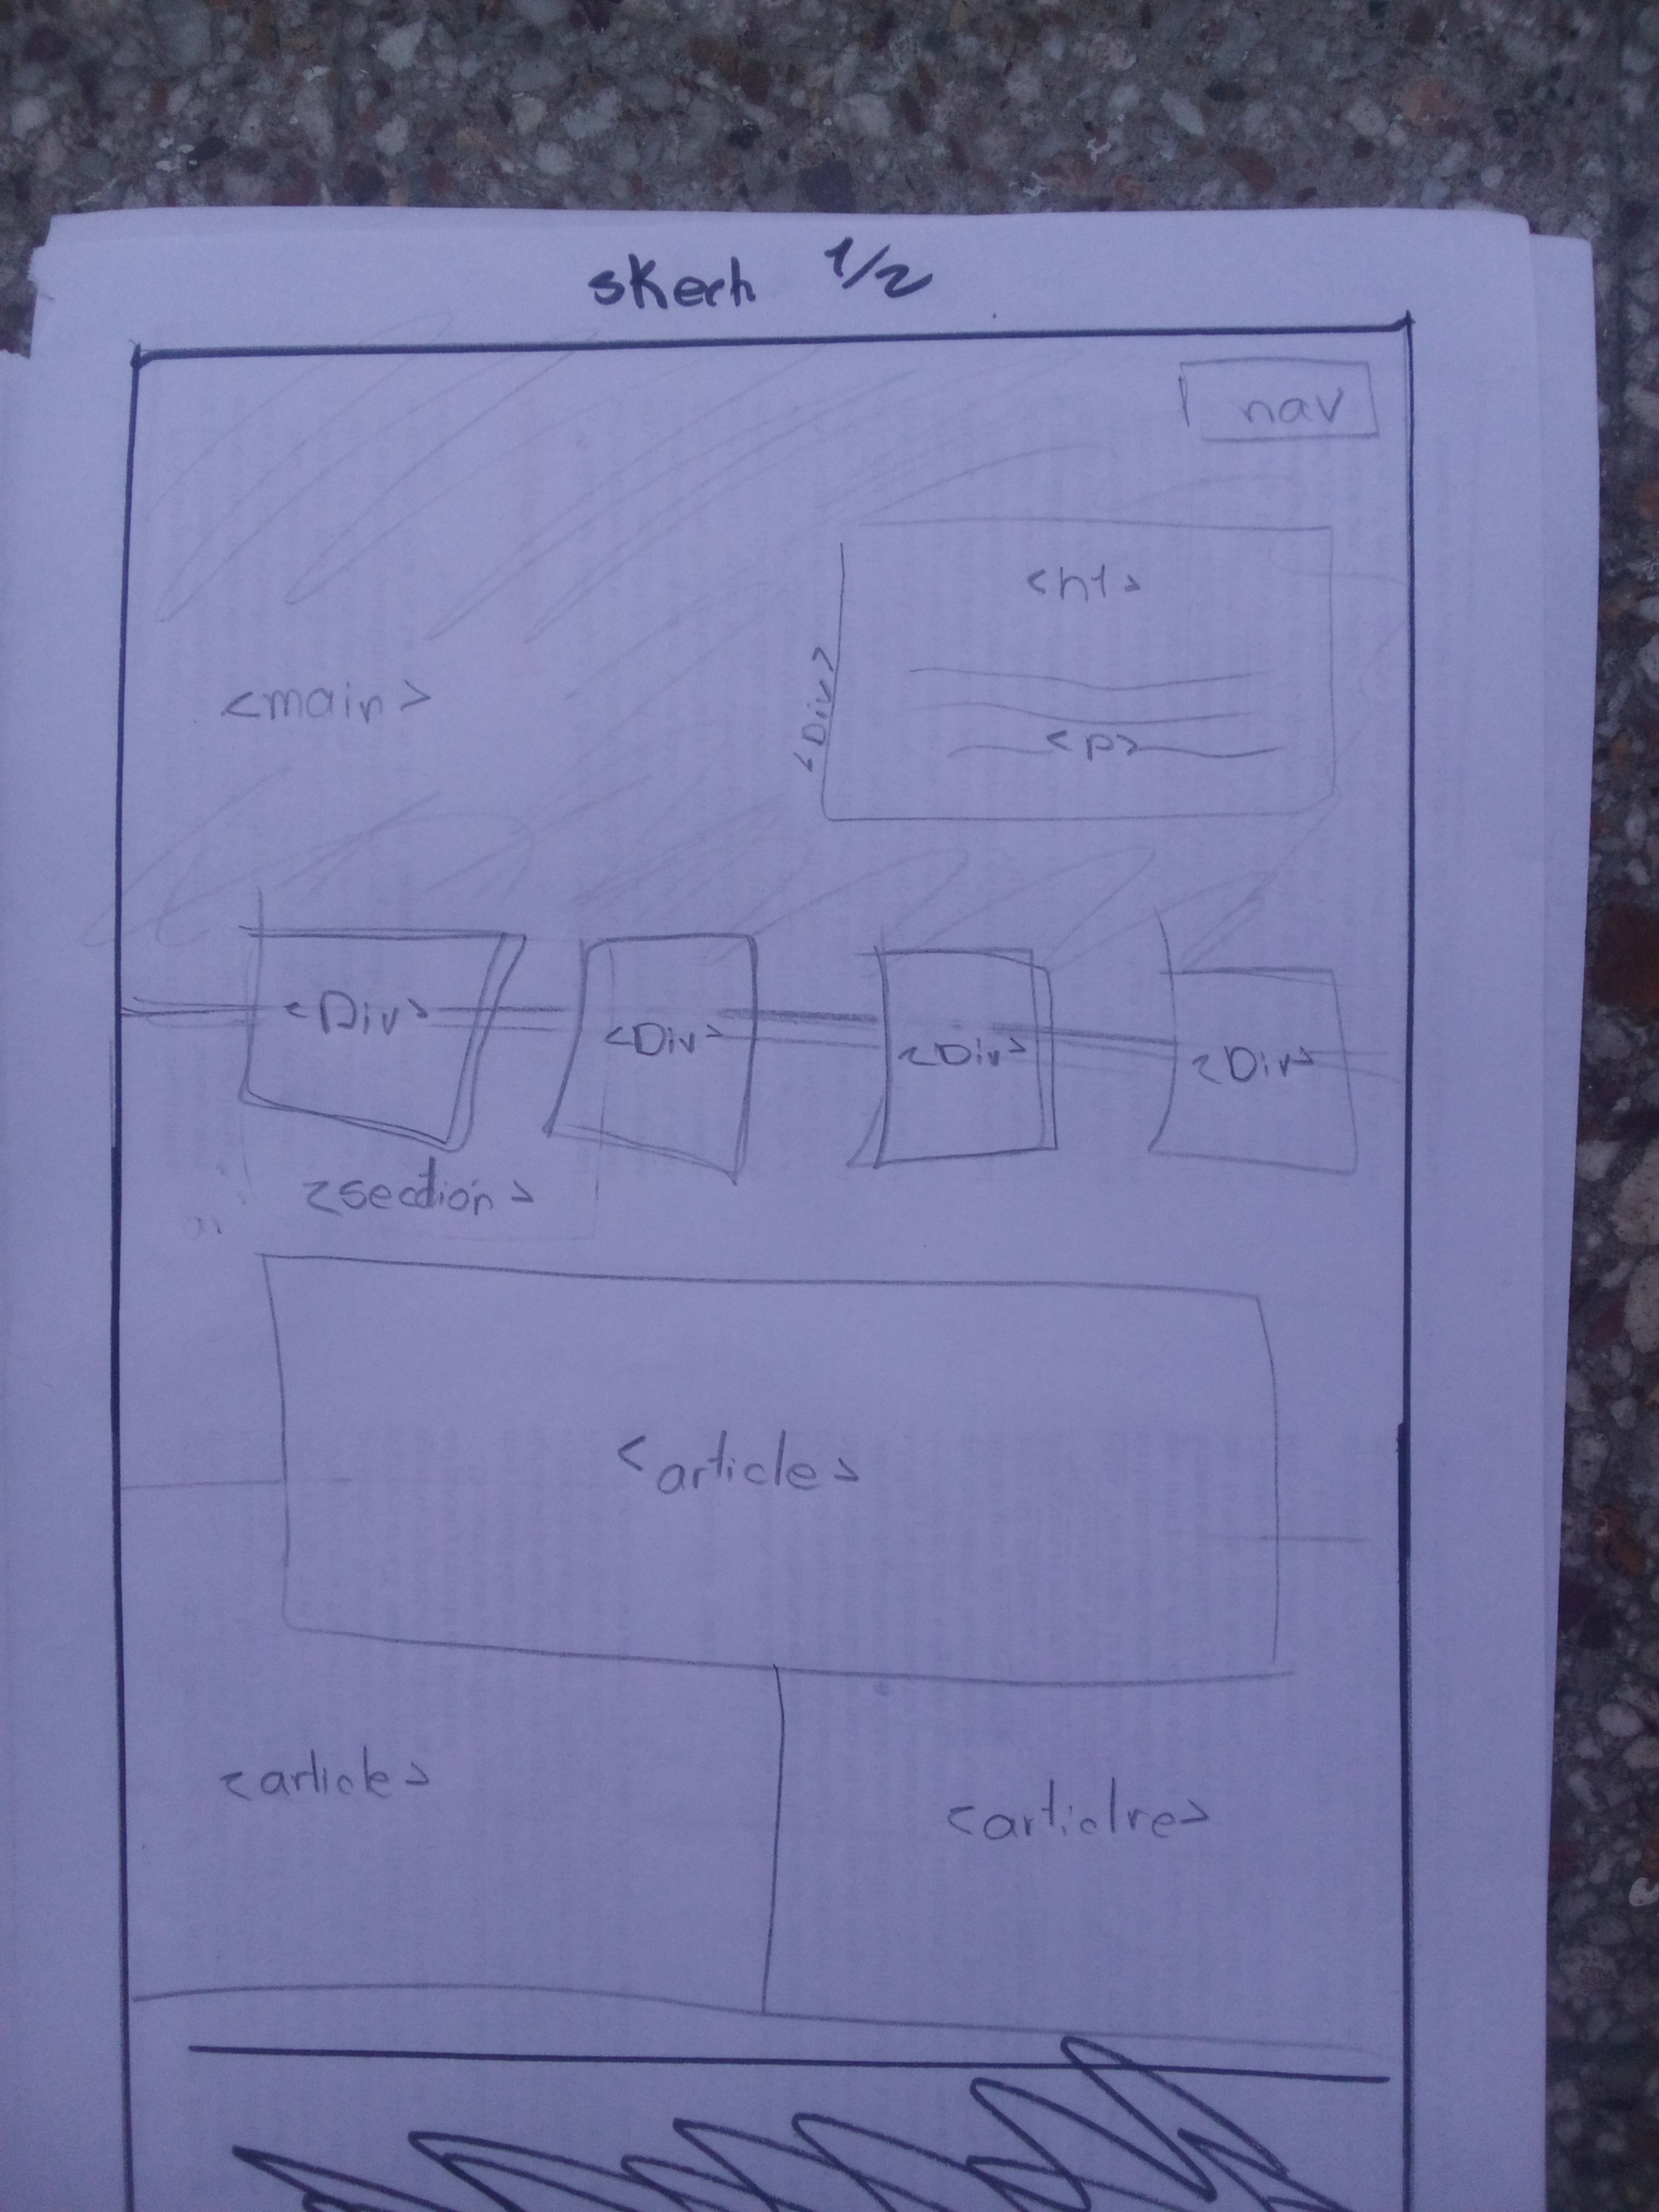 skech 1/2
nav
<h1>
<main>
<Div>
<p>
<Div> <Div> <Div> <Div>
<section>
<article>
<article>
<articlre>